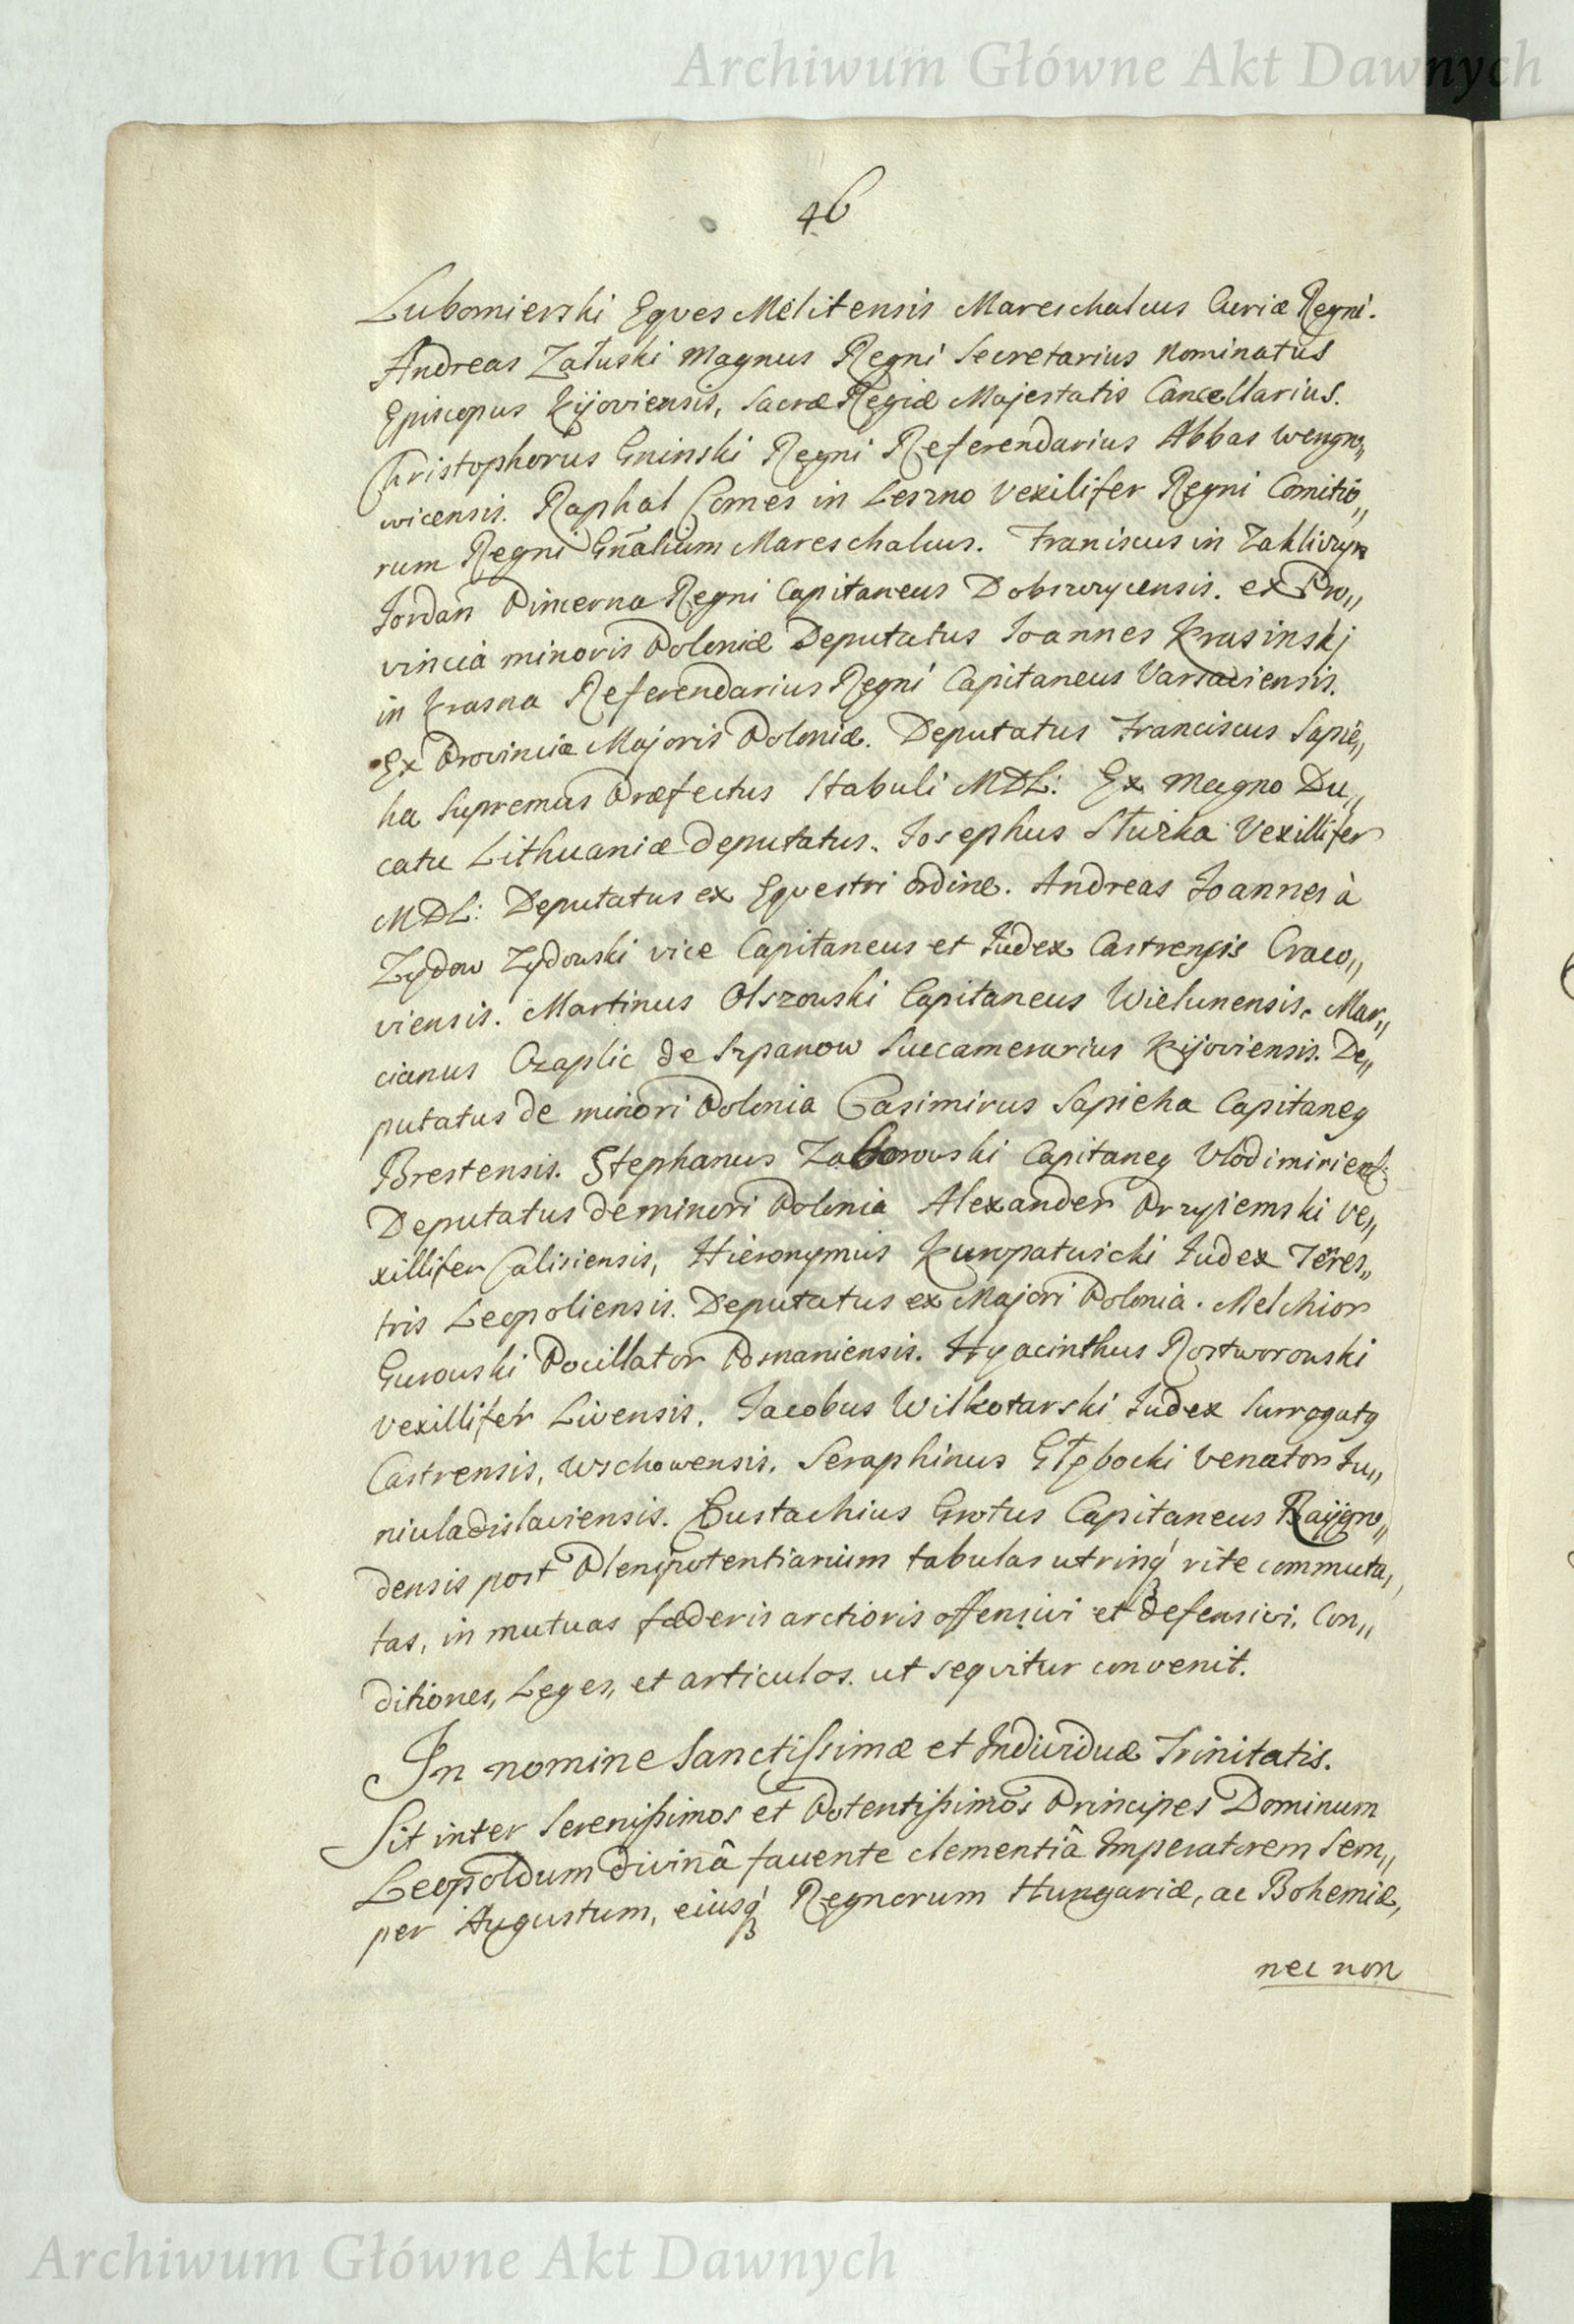 Archiwum Główne Akt Dawnych
46
Lubomierski Eqves Melitensis Mareschalcus Curiæ Regni.
Andreas Załuski Magnus Regni Secretarius Nominatus
Episcopus Kijoviensis, Sacræ Regiæ Majestatis Cancellarius.
Christophorus Gninski Regni Referendarius Abbas Wengro„
wicensis. Raphal Comes in Leszno Vexilifer Regni Comitio„
rum Regni Gn̄alium Mareschalcus. Franiscus in Zakliczyn
Jordan Pincerna Regni Capitaneus Dobrzycensis. ex Pro„
vincia minoris Poloniæ Deputatus Joannes Krasinskj
in Krasna Referendarius Regni Capitaneus Varsaviensis.
Ex Provincia Majoris Poloniæ. Deputatus Franciscus Sapie„
ha Supremus Præfectus Stabuli MDL: Ex Magno Du„
catu Lithuaniæ deputatus. Josephus Słuzka Vexillifer
MDL: Deputatus ex Eqvestri ordine. Andreas Joannes à
Zydow Zydowski vice Capitaneus et Judex Castrensis Craco„
viensis. Martinus Olszowski Capitaneus Wielunensis. Mar„
cianus Czaplic de Szpanow Succamerarius Kijoviensis. De„
putatus de minori Polonia Casimirus Sapieha Capitaneq
Brestensis. Stephanus Zahorowski Capitaneq Vlodimiriens:
Deputatus de minori Polonia Alexander Przyiemski ve„
xillifer Calisiensis, Hieronymus Kuropatwichi Judex Terres„
tris Leopoliensis. Deputatus ex Majori Polonia. Melchior
Gurowski Pocillator Posnaniensis. Hyacinthus Rostworowski
Vexillifer Livensis. Jacobus Wilkotarski Judex Surrogatq
Castrensis, Wschowensis. Seraphinus Głębocki Venator Ju„
niuladislaviensis. Eustachius Grotus Capitaneus Raÿgro„
densis post Plenipotentiarium tabulas utrinq́ rite commuta„
tas, in mutuas fœderis arctioris offensivi et defensivi, Con„
ditiones, Leges, et articulos. ut seqvitur convenit.
In nomine Sanctissimæ et Individuæ Trinitatis.
Sit inter Serenissimos et Potentissimos Principes Dominum
Leopoldum divinâ favente clementiâ Imperatorem Sem„
per Augustum, eiusq́ Regnorum Hungariæ, ac Bohemiæ,
nec non
Archiwum Główne Akt Dawnych